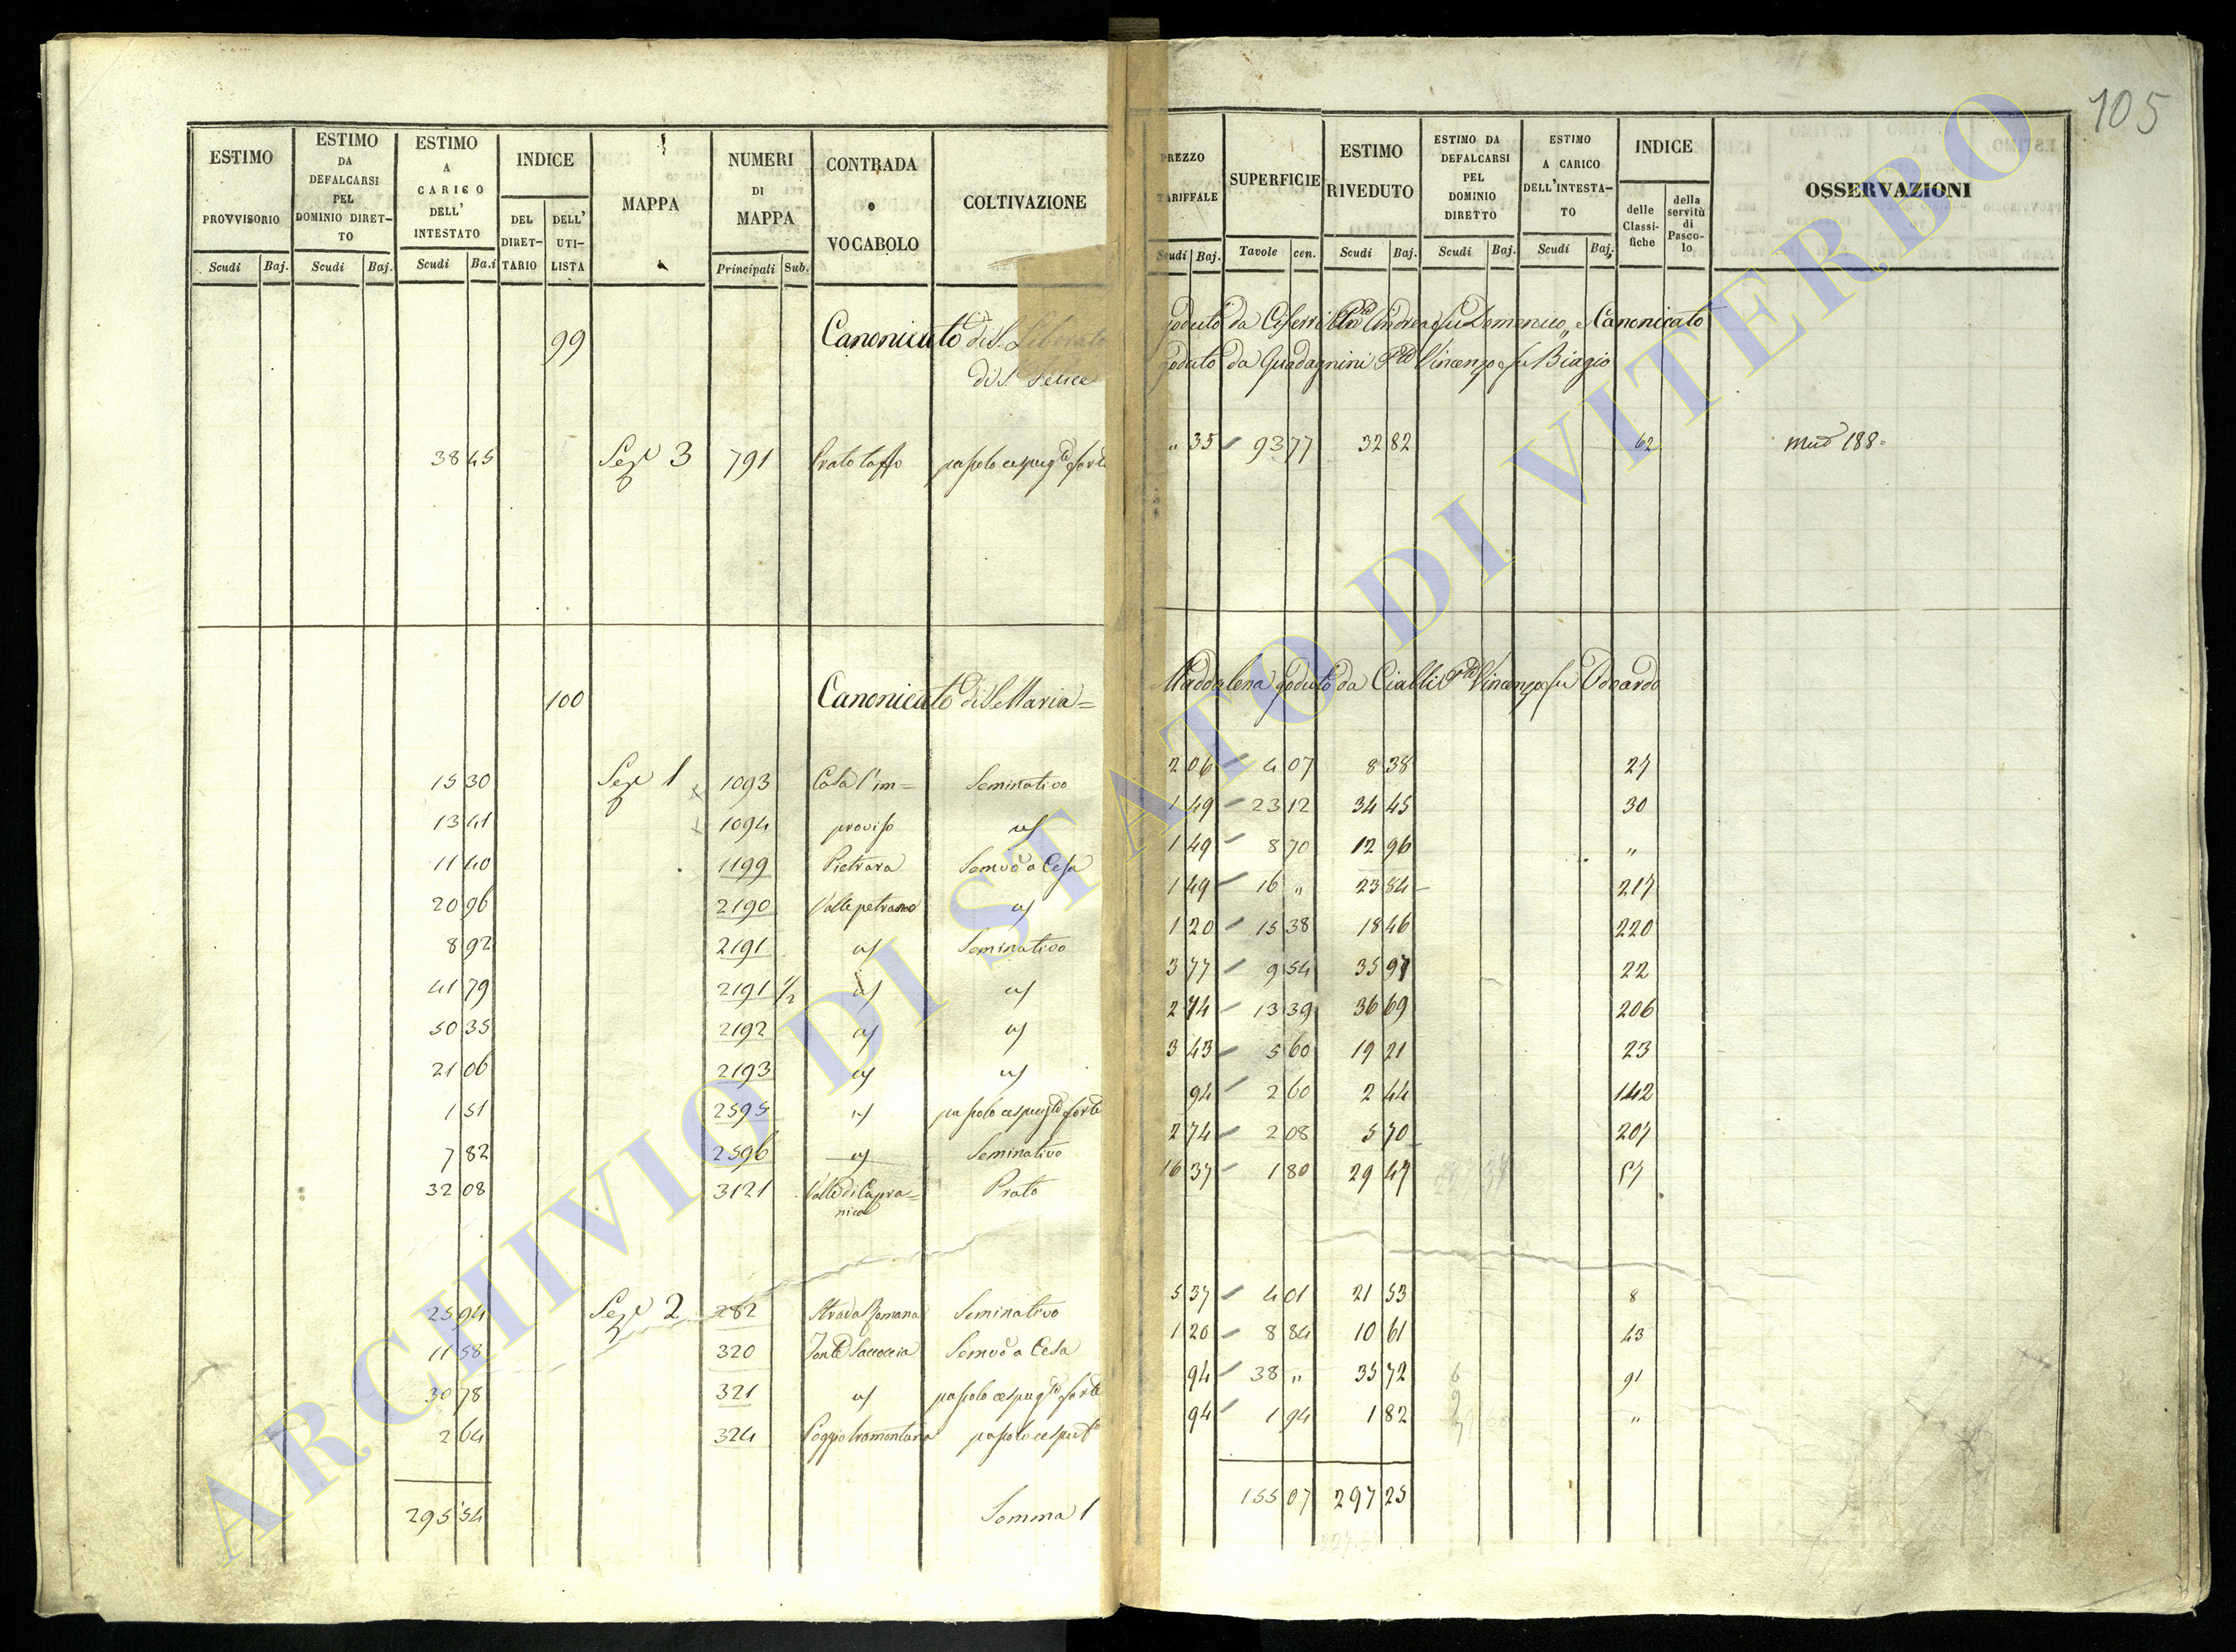 105
ESTIMO PROVVISORIO Scudi Baj.
ESTIMO DA DEFALCARSI PEL DOMINIO DIRET-TO Scudi Baj.
ESTIMO A CARICO DELL' INTESTATO Scudi Ba.i
INDICE DEL DIRET-TARIO DELL' UTI-LISTA
MAPPA
NUMERI DI MAPPA Principali Sub.
CONTRADA o VOCABOLO
COLTIVAZIONE
PREZZO TARIFFALE Scudi Baj.
SUPERFICIE Tavole cen.
ESTIMO RIVEDUTO Scudi Baj.
ESTIMO DA DEFALCARSI PEL DOMINIO DIRETTO Scudi Baj.
ESTIMO A CARICO DELL'INTESTA-TO Scudi Baj.
INDICE delle Classi-fiche della servitù di Pasco-lo
OSSERVAZIONI
99 Canonicato di S. Liberato goduto da Andrea fu Domenico, e Canonicato
di S. Felice goduto da Guadagnini Vincenzo fu Biagio
38 45 Sez.e 3 791 Prato pascolo cespug.to forte " 35 93 77 32 82 62 188=
100 Canonicato di S. Maria= Maddalena goduto da Cialli Vincenzo fu Odoardo
15 30 Sez.e 1 1093 Casa l'im= Seminativo 2 06 4 07 8 38 27
13 41 1094 proviso 1 49 23 12 34 45 30
11 40 1199 Pietrara Sem.vo a Cesa 1 49 8 70 12 96 "
20 96 2190 Valle petrana 1 49 16 " 23 84 217
8 92 2191 Seminativo 1 20 15 38 18 46 220
41 79 2191 1/2 3 77 9 54 35 97 22
50 35 2192 2 74 13 39 36 69 206
21 06 2193 3 43 5 60 19 21 23
1 51 2595 pascolo cespug.to forte 94 2 60 2 44 142
7 82 2596 Seminativo 2 74 2 08 5 70 207
32 08 3121 Valle di Capra= Prato 16 37 1 80 29 47 57
nica
25 94 Sez.e 2 282 Strada Romana Seminativo 5 37 4 01 21 53 8
11 58 320 Fonte Saccoccia Sem.vo a Cesa 1 20 8 84 10 61 43
30 78 321 pascolo cespug.to forte 94 38 " 35 72 91
2 64 324 Poggio tramontana pascolo 94 1 94 1 82 "
295 54 Somma 1 155 07 297 25
ARCHIVIO DI STATO DI VITERBO